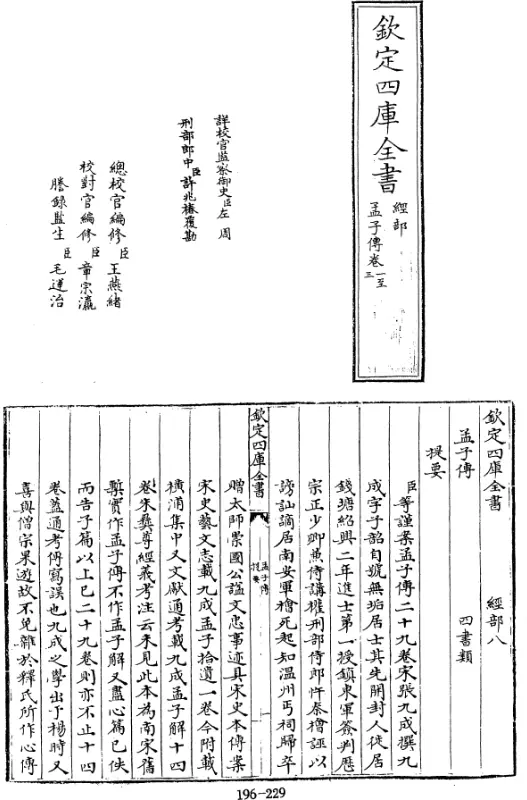 欽定四庫全書
經部
孟子傳卷一至三
詳校官監察御史臣左周
刑部郎中臣許兆椿覆勘
總校官編修臣王燕緒
校對官編修臣章宗瀛
謄録監生臣毛運治
欽定四庫全書 經部八
孟子傳 四書類
提要
臣等謹案孟子傳二十九卷宋張九成撰九
成字子韶自號無垢居士其先開封人徙居
錢塘紹興二年進士第一授鎮東軍簽判歷
宗正少卿兼侍講權刑部侍郎忤秦檜誣以
謗訕謫居南安軍檜死起知溫州丐祠歸卒
欽定四庫全書 孟子傳 提要
贈太師崇國公諡文忠事迹具宋史本傳案
宋史藝文志載九成孟子拾遺一卷今附載
橫浦集中又文獻通考載九成孟子解十四
卷朱彝尊經義考注云未見此本為南宋舊
槧實作孟子傳不作孟子解又盡心篇已佚
而告子篇以上已二十九卷則亦不止十四
卷蓋通考傳寫誤也九成之學出于楊時又
喜與僧宗杲遊故不免雜於釋氏所作心傳
196-229